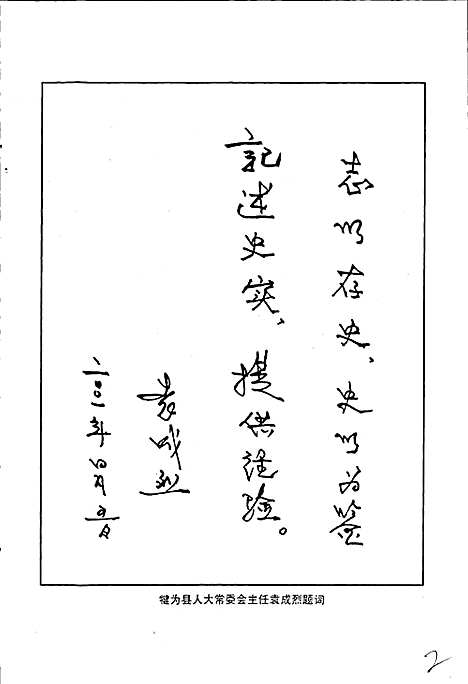 志以存史、史以为鉴
记述史实、提供经验。
袁成烈
二00一年四月五日
犍为县人大常委会主任袁成烈题词
2